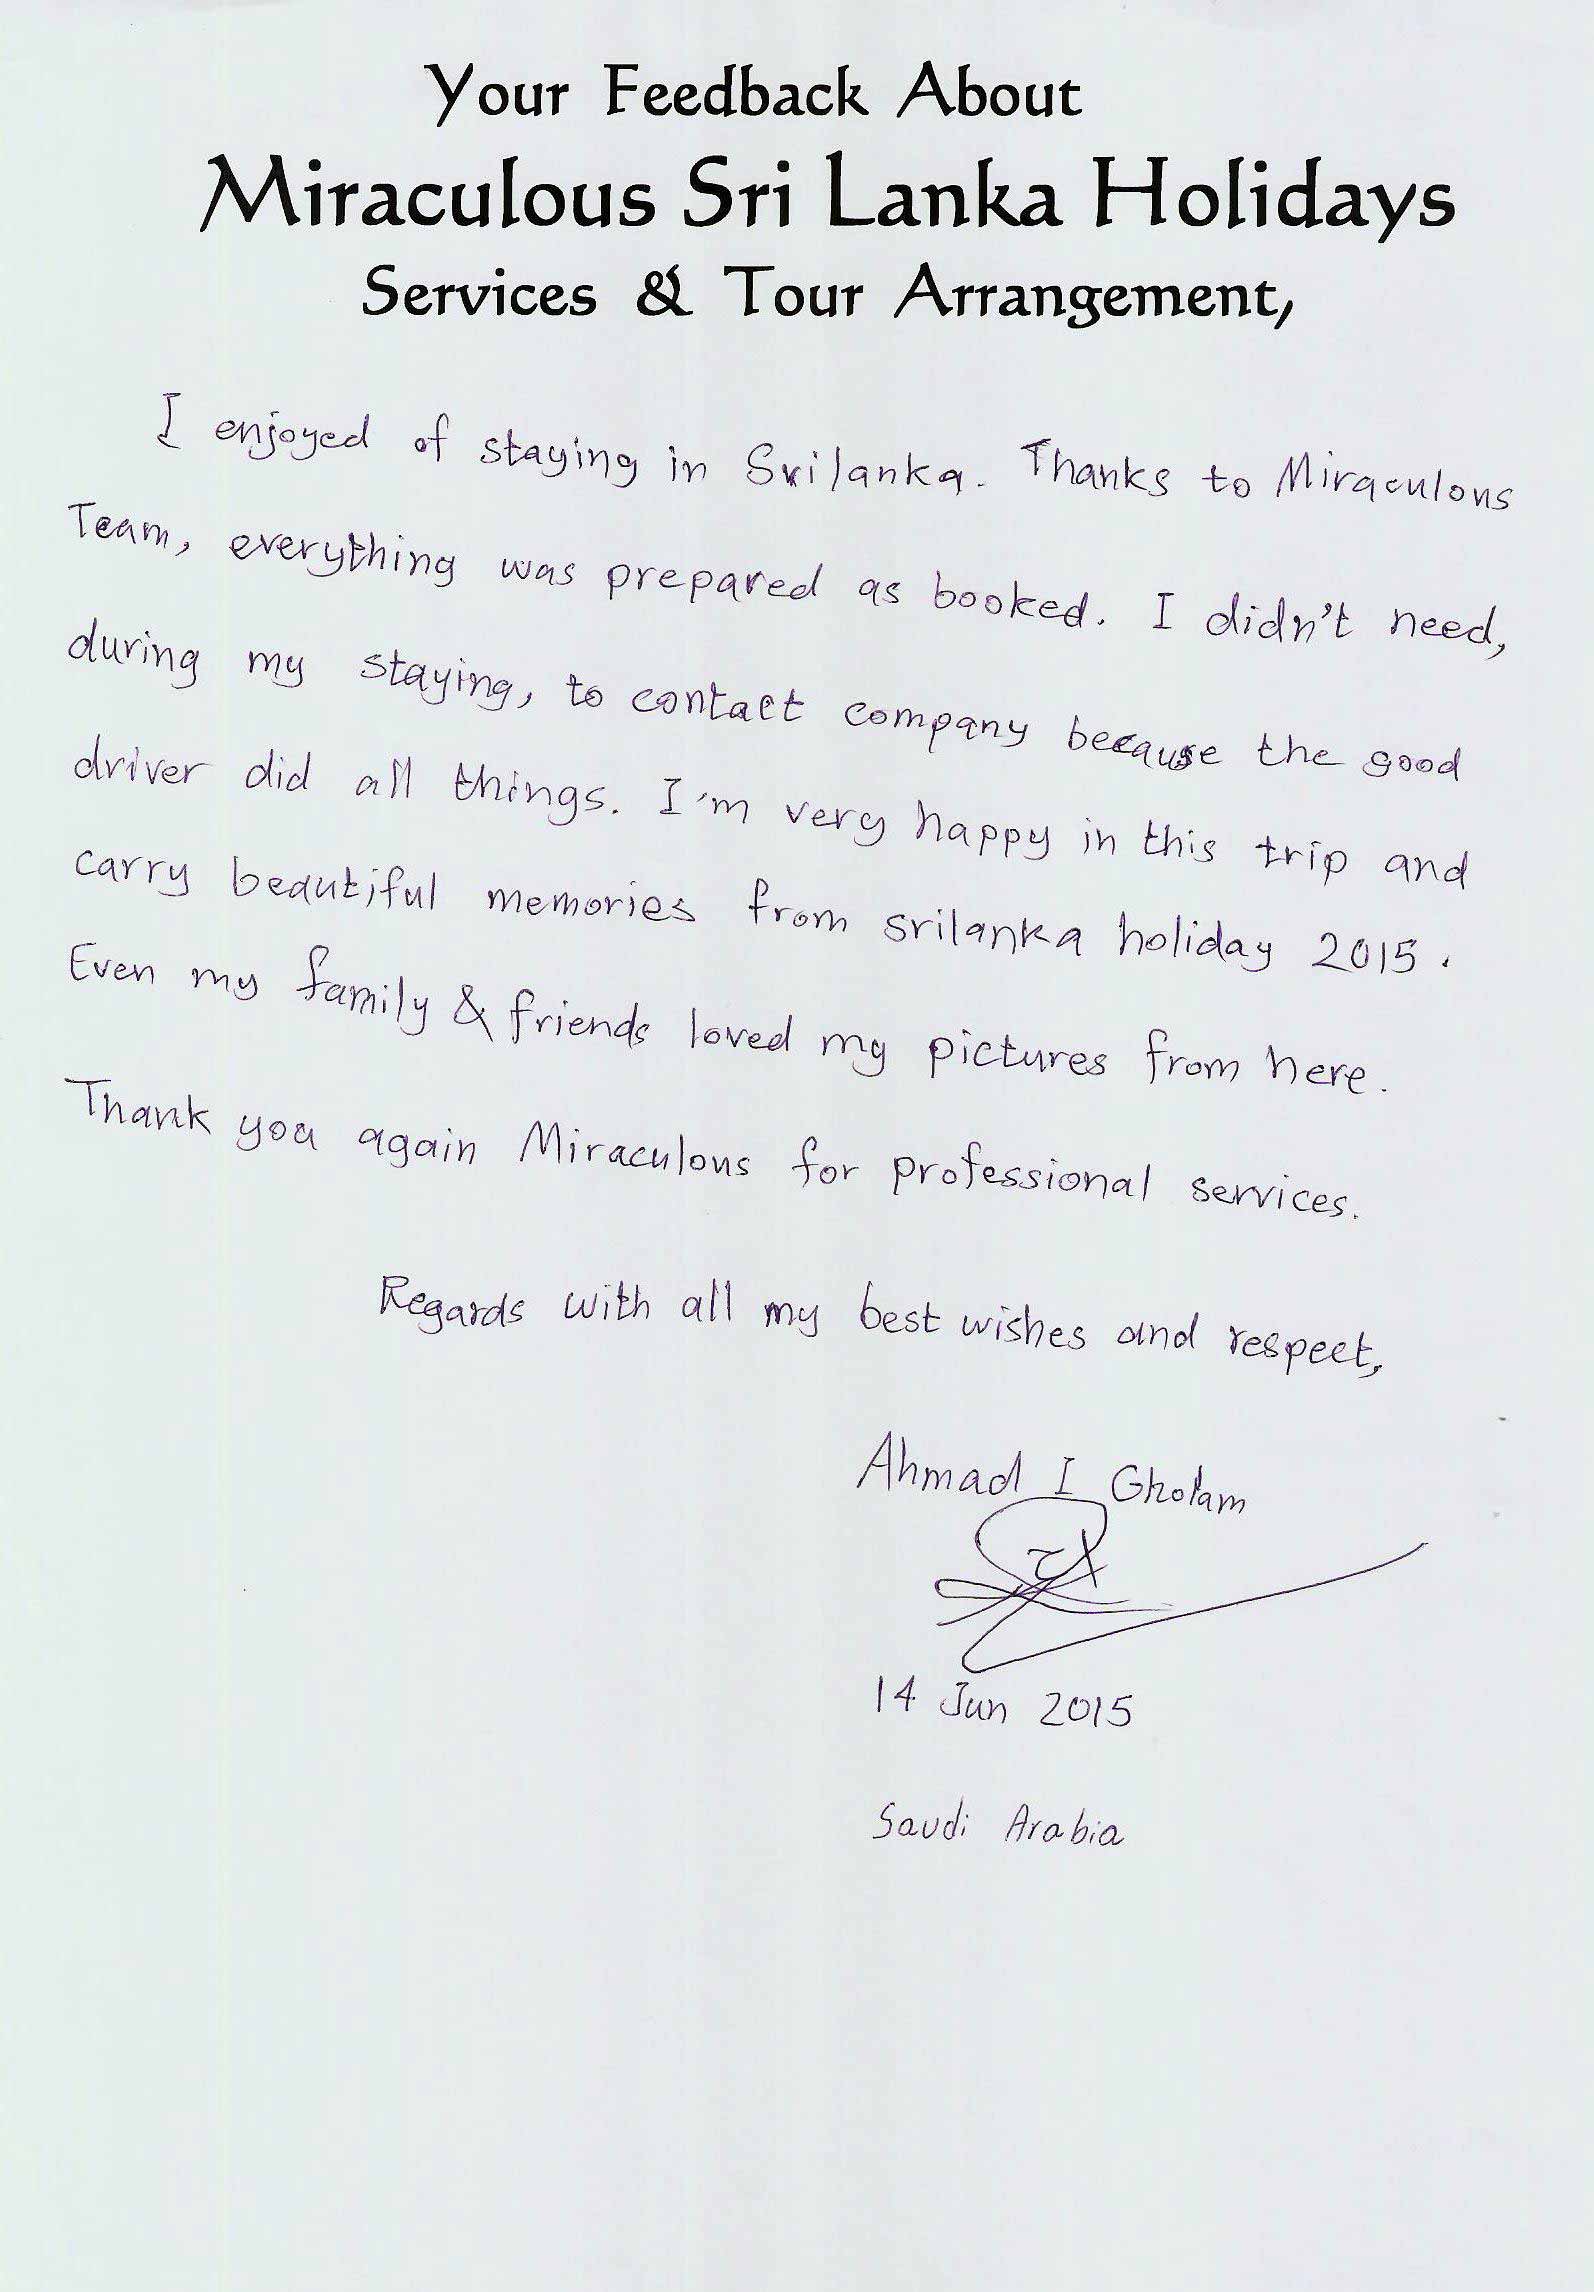 Your Feedback About
Miraculous Sri Lanka Holidays
Services & Tour Arrangement,
I enjoyed of staying in Srilanka. Thanks to Miraculous
Team, everything was prepared as booked. I didn't need,
during my staying, to contact company because the good
driver did all things. I'm very happy in this trip and
carry beautiful memories from srilanka holiday 2015.
Even my family & friends loved my pictures from here.
Thank you again Miraculous for professional services.
Regards with all my best wishes and respect,
Ahmad I Gholam
14 Jun 2015
Saudi Arabia